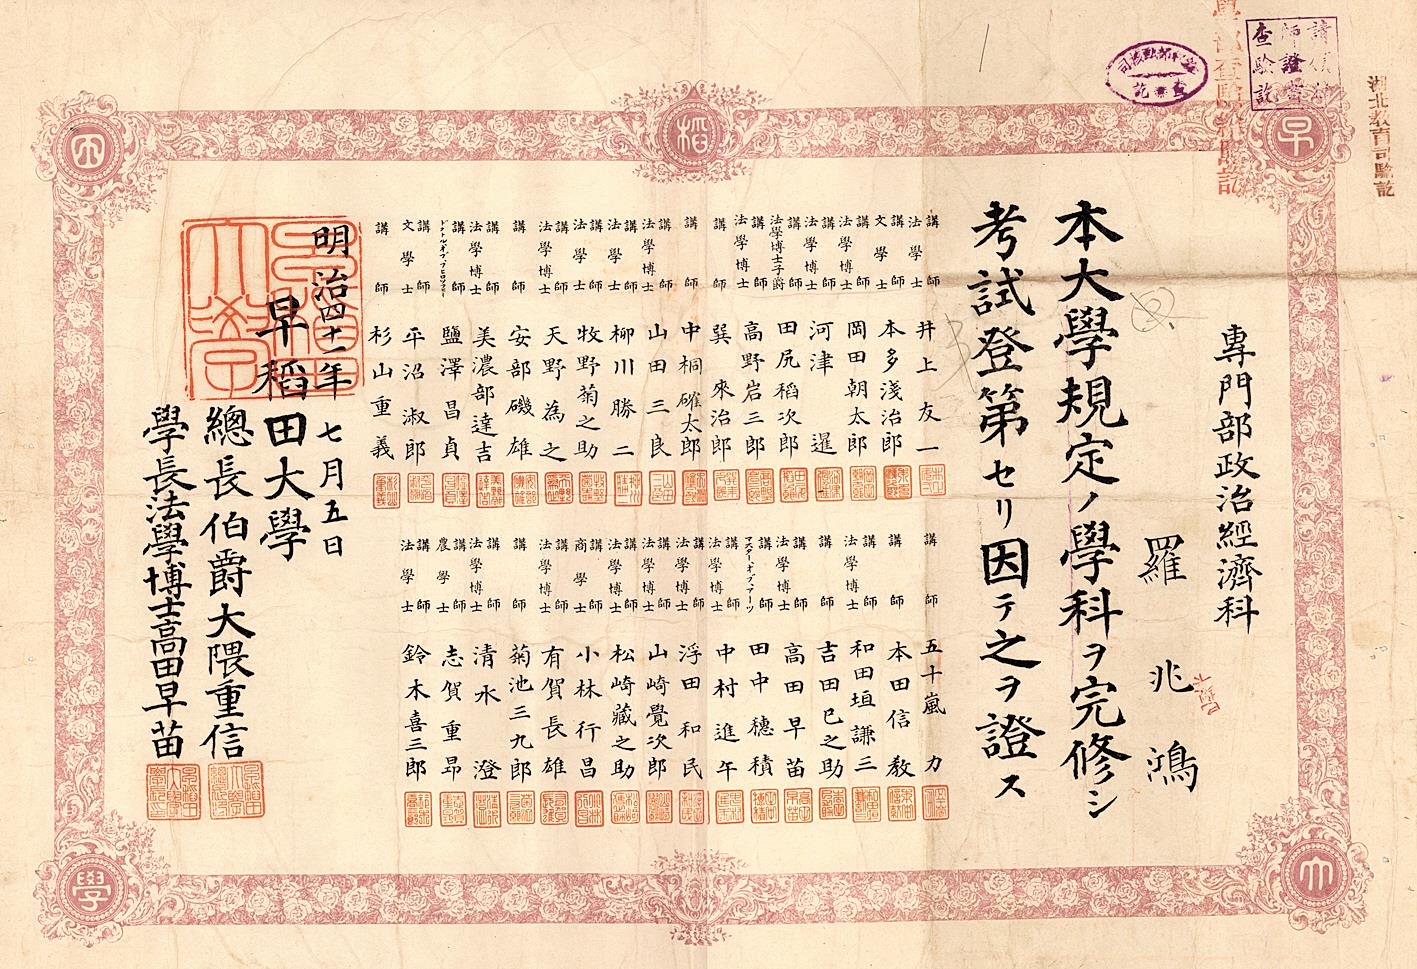 專門部政治經濟科
羅兆鴻
本大學規定ノ學科ヲ完修シ
考試登第セリ因テ之ヲ證ス
講師法學士 井上友一
講師文學士 本多淺治郎
講師法學博士 岡田朝太郎
講師法學士 河津暹
講師法學博士子爵 田尻稻次郎
講師法學博士 高野岩三郎
講師 巽來治郎
講師 中桐確太郎
講師法學博士 山田三良
講師法學士 柳川勝二
講師法學士 牧野菊之助
講師法學博士 天野為之
講師 安部磯雄
講師法學博士 美濃部達吉
講師ドクトル、オブ、フヒロソフヒー 鹽澤昌貞
講師文學士 平沼淑郎
講師 杉山重義
講師 五十嵐力
講師 本田信教
講師法學博士 和田垣謙三
講師 吉田巳之助
講師法學博士 高田早苗
講師マスター、オブ、アーツ 田中穗積
講師法學博士 中村進午
講師 浮田和民
講師法學博士 山崎覺次郎
講師法學博士 松崎藏之助
講師商學士 小林行昌
講師法學博士 有賀長雄
講師 菊池三九郎
講師法學博士 清水澄
講師農學士 志賀重昂
講師法學士 鈴木喜三郎
明治四十一年七月五日
早稻田大學
總長伯爵大隈重信
學長法學博士高田早苗
早
稻
田
大
學
湖北教育司驗訖